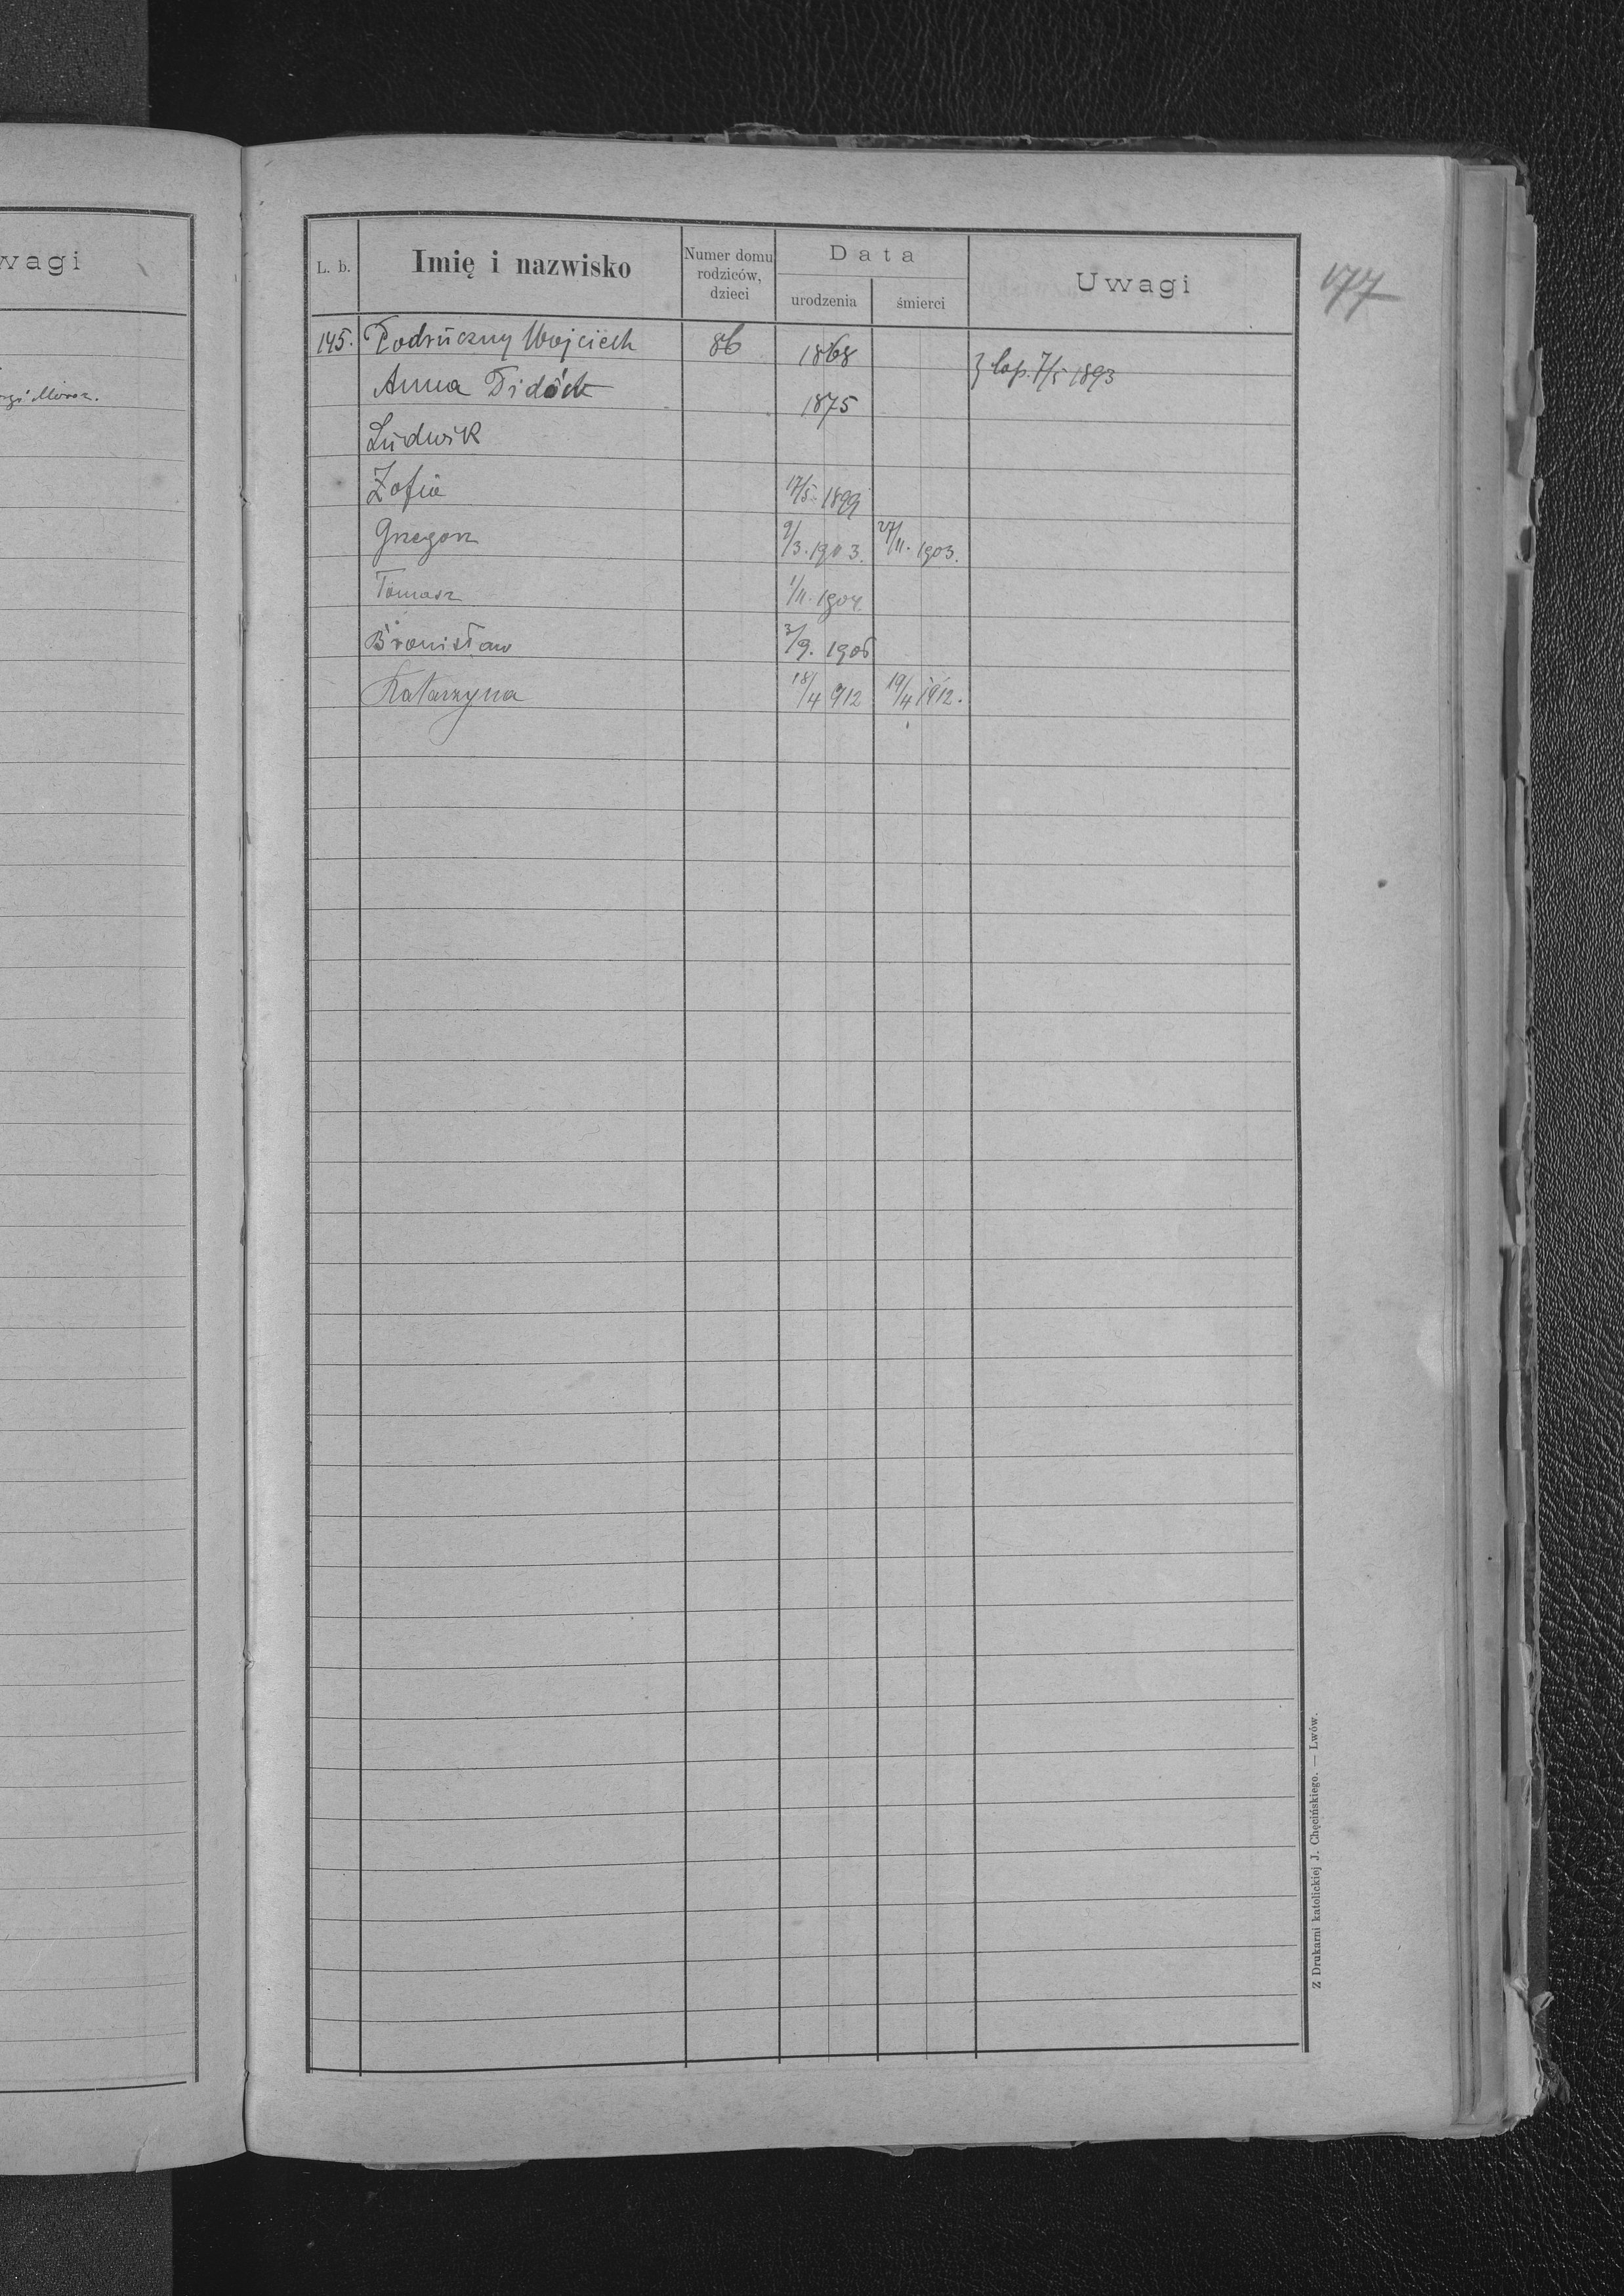 wagi
Morsz.
177
L. b. Imię i nazwisko Numer domu rodziców, dzieci Data urodzenia śmierci Uwagi
145. Podruczny Wojciech 86 1868 } cop. 7/5 1893
Anna Didóch 1875
Ludwik
Zofia 17/5 1899
Grzegorz 9/3. 1903. 27/11. 1903.
Tomasz 1/11. 1904.
Bronisław 3/9. 1906
Katarzyna 18/4 912 19/4 1912.
Z Drukarni katolickiej J. Chęcińskiego. — Lwów.